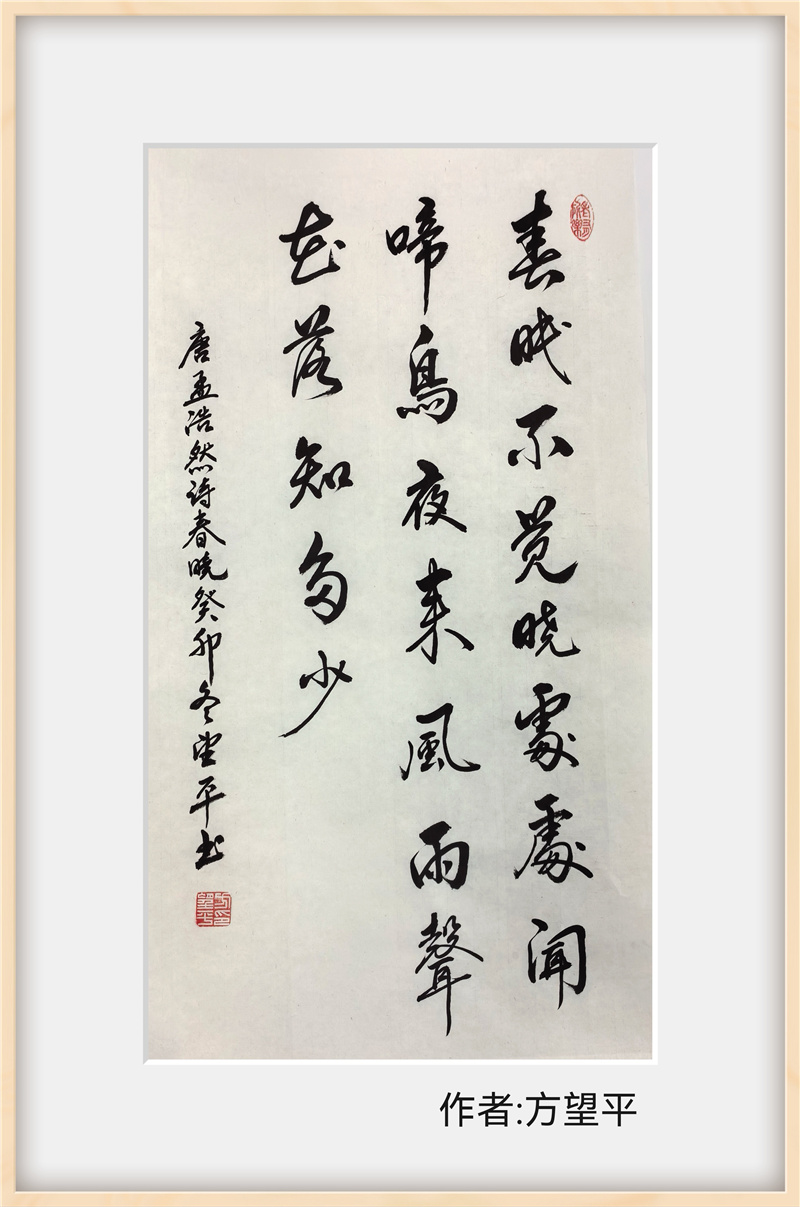 春眠不觉晓處處闻
啼鳥夜来風雨聲
花落知多少
唐孟浩然诗春晓癸卯冬望平书
作者:方望平